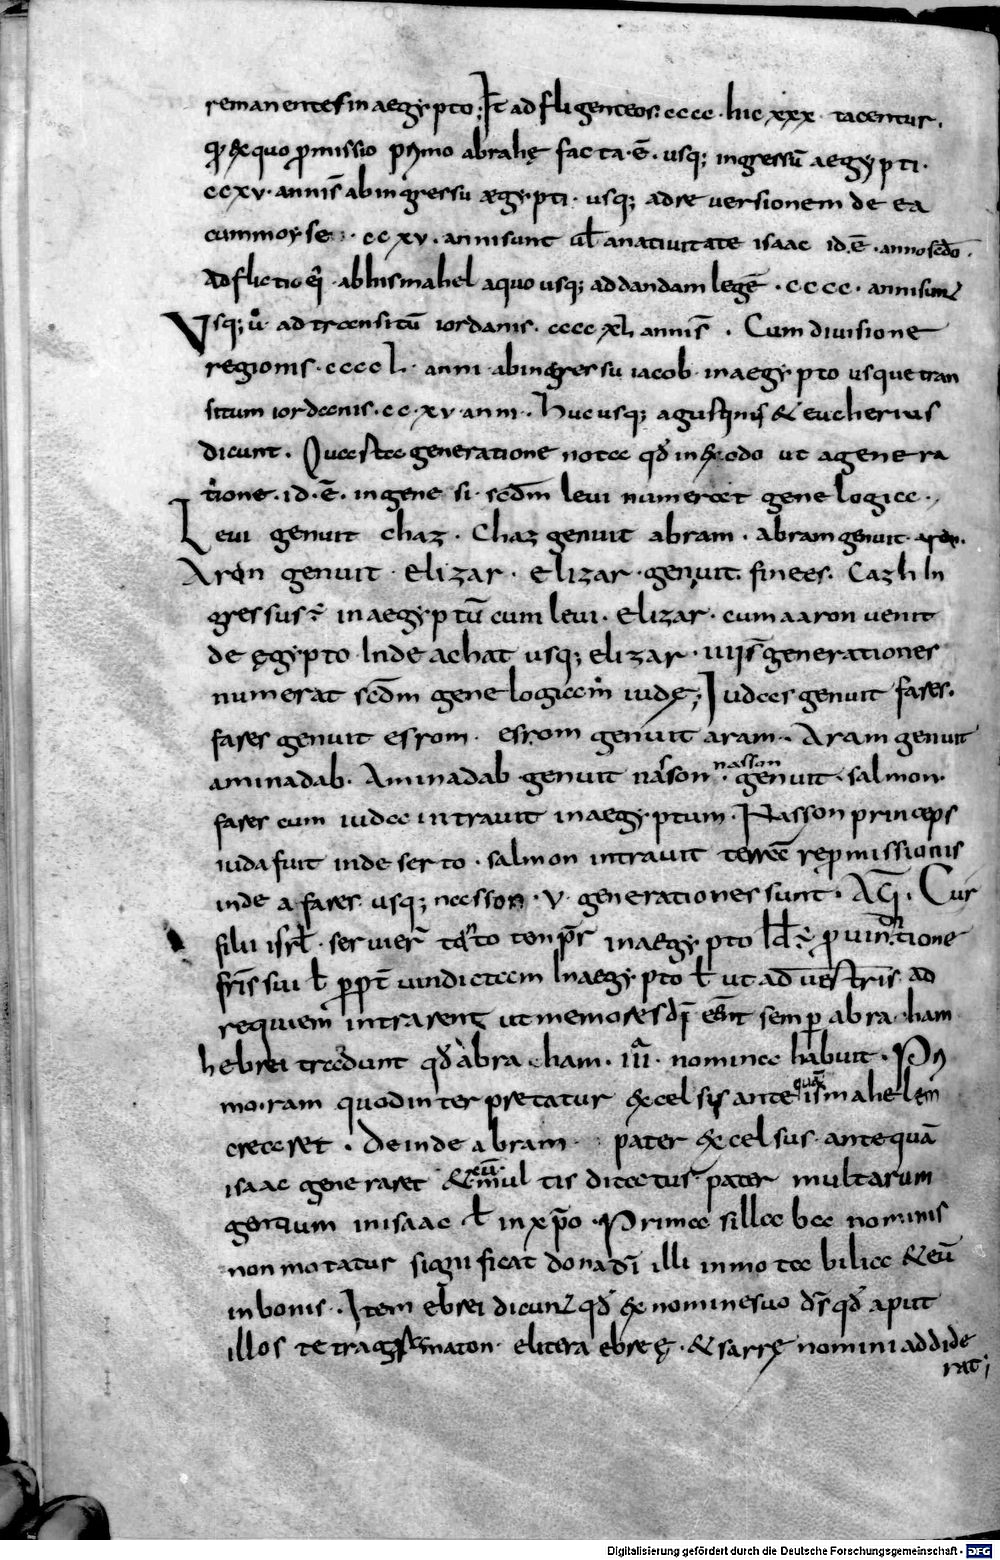 remanentes in aegypto; It adfligenteos. cccc. hic xxx tacentur.
qͥ ex quo ꝓmissio pͥmo abrahę facta .ē. usq; ingressū aegypti.
ccxv. annis̄ abingressu ægypti. usq; adre versionem de ea
cummoyse. ccxv. anni sunt uł anativitate isaac id.ē. anno scďo.
Adflictioꝗ̄ abhismahel aquo usq; addandam legē. cccc. anni sunt
Usq; ů ad transitū iordanis. cccc xl annis̄. Cum divisione
regionis. ccccl. anni. abingressu iacob. inaegypto usque tran
situm iordanis. cc. xv anni. Huc usq; agustinus & eucherius
dicunt. Questa generatione nota qď in exodo ut a genera
tione. id. ē. in gene si. scďm levi numerat genelogia.
Levi genuit chaz. Chaz genuit abram. abram genuit. aron.
Aron genuit. Elizar. Elizar. genuit. finees. Cazh In
gressus ē̄ in aegyptū cum levi. Elizar. cum aaron venit
de ęgypto Inde achat usq; elizar. iiii s̄ generationes
numerat scďm genelogiam iudę; Iudas genuit fares.
fares genuit esrom. esrom genuit aram. Aram genuit
aminadab. Aminadab genuit nasson. nasson genuit. salmon.
fares cum iuda intravit inaegyptum. Nasson princeps
iuda fuit inde serto. salmon intravit terrae repmissionis
inde a fares usq; nasson. v. generationes sunt. AG. Cur
filii isrł. servier̄ tato temp̄r inaegypto Id ē ꝓ vinditione
fr̄is sui ł ꝓpt̄ vindictam In aegypto ł ut ad vestr̄is ad
requiem intrarent ut memores dī es̄nt semp abraham
hebrei tradunt qď abraham. iii. nomina habuit. Pͥ
mo. ram quod interpretatur excelsus antequā ismahelem
crearet. Deinde abram. pater excelsus. antequā
isaac generaret & cū multis ditatus pater multarum
gentium in isaac ł in xp̄o. Prima sillaba nominis
non motatur significat dona dī illi inmotabilia & eū
in bonis. Item ebrei dicunt qď ex nomine suo dr̄ qď aput
illos tetragramaton. elitera ebreę. & sarrę nomini addide
rat;
Digitalisierung gefördert durch die Deutsche Forschungsgemeinschaft - DFG